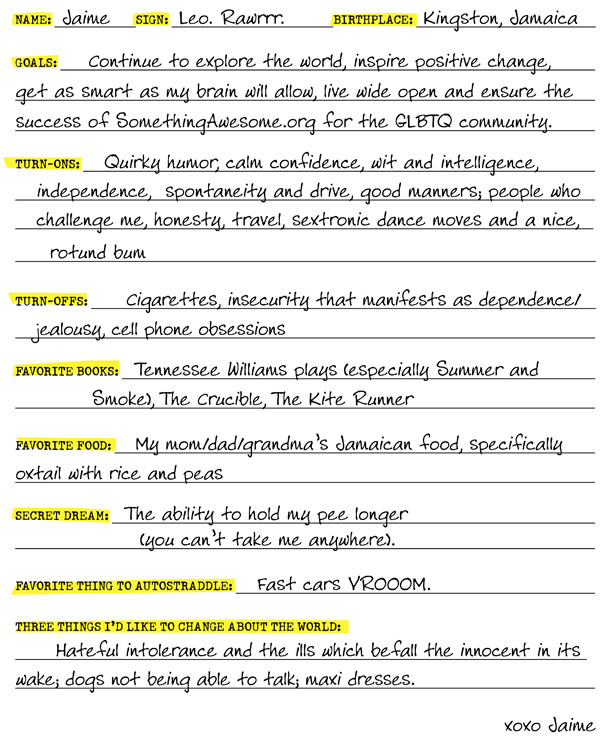 NAME: Jaime SIGN: Leo. Rawrrr. BIRTHPLACE: Kingston, Jamaica
GOALS: Continue to explore the world, inspire positive change,
get as smart as my brain will allow, live wide open and ensure the
success of SomethingAwesome.org for the GLBTQ community.
TURN-ONS: Quirky humor, calm confidence, wit and intelligence,
independence, spontaneity and drive, good manners; people who
challenge me, honesty, travel, sextronic dance moves and a nice,
rotund bum
TURN-OFFS: Cigarettes, insecurity that manifests as dependence/
jealousy, cell phone obsessions
FAVORITE BOOKS: Tennessee Williams plays (especially Summer and
Smoke), The Crucible, The Kite Runner
FAVORITE FOOD: My mom/dad/grandma's Jamaican food, specifically
oxtail with rice and peas
SECRET DREAM: The ability to hold my pee longer
(you can't take me anywhere).
FAVORITE THING TO AUTOSTRADDLE: Fast cars VROOOM.
THREE THINGS I'D LIKE TO CHANGE ABOUT THE WORLD:
Hateful intolerance and the ills which befall the innocent in its
wake; dogs not being able to talk; maxi dresses.
xoxo Jaime